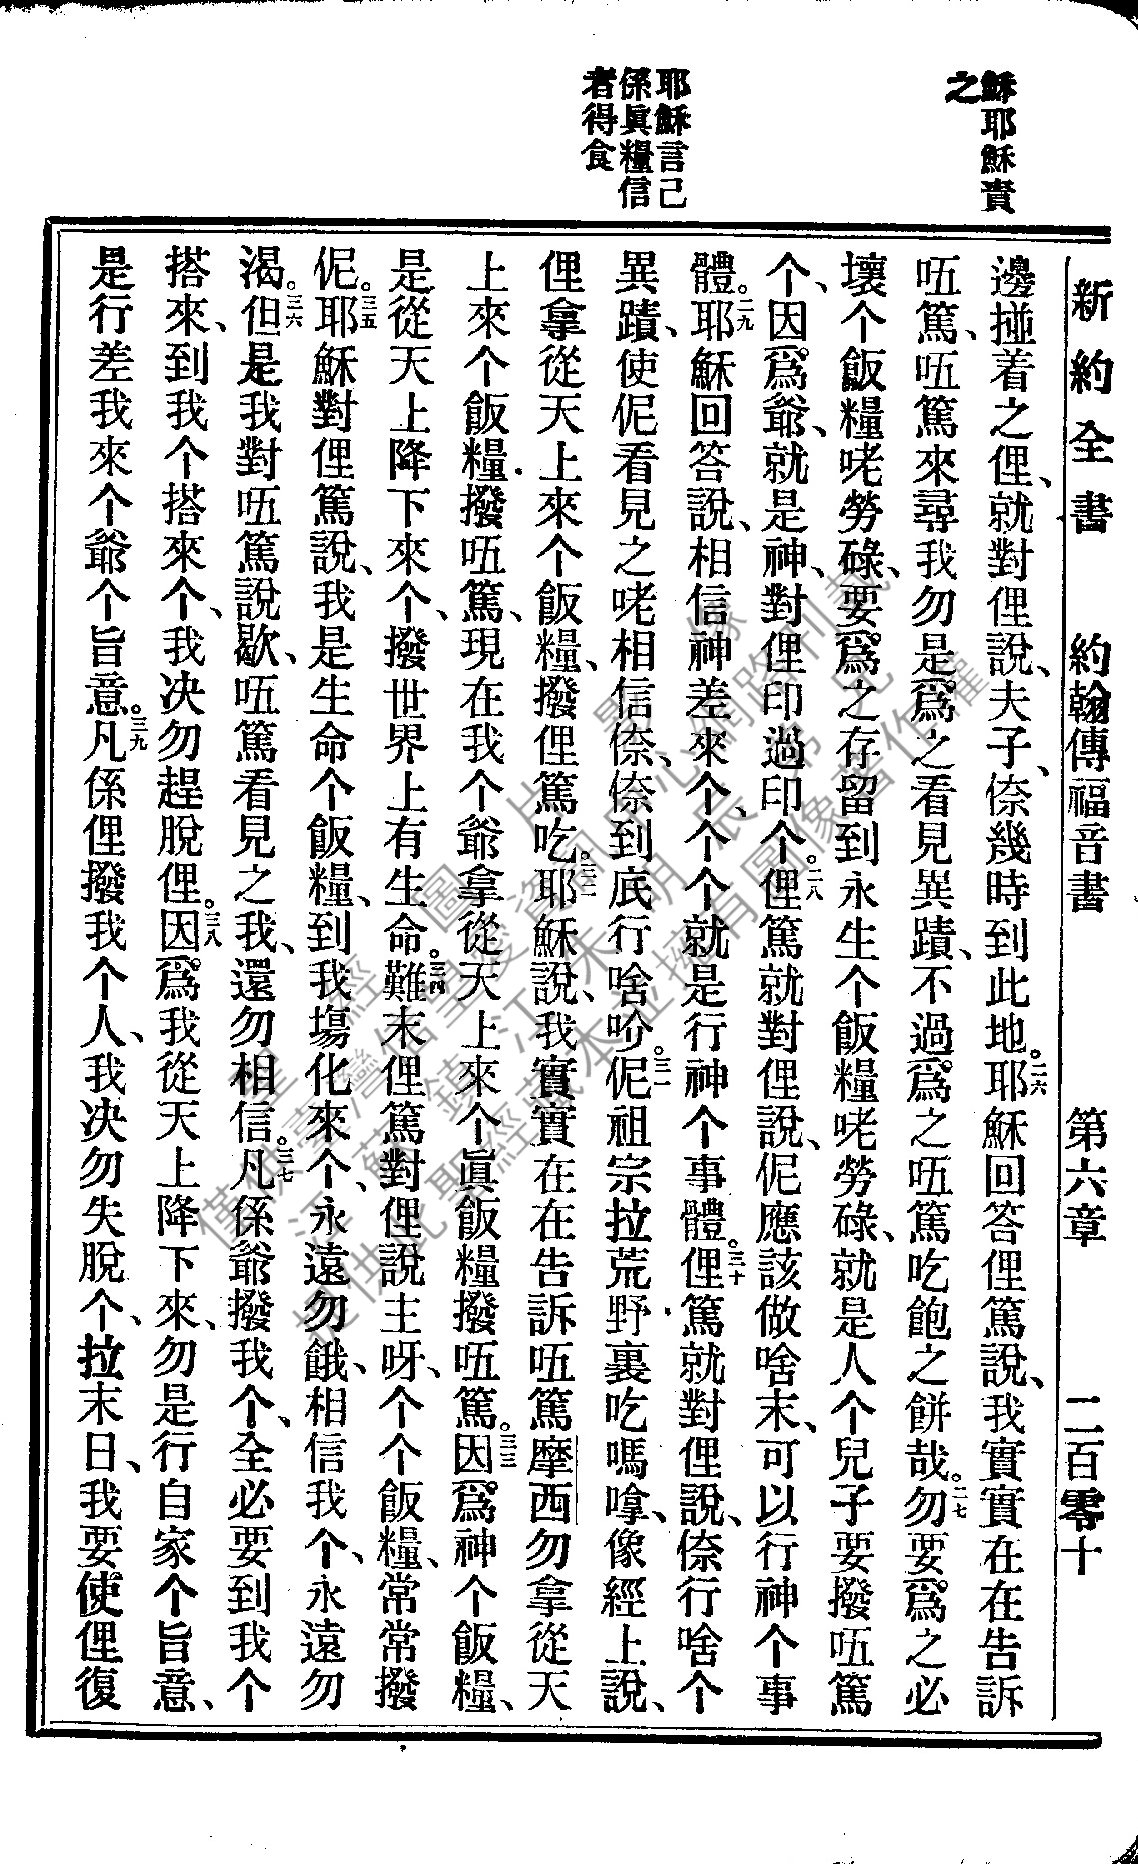 新約全書 約翰傳福音書 第六章 二百零十
穌耶穌責
之
耶穌言己
係眞糧信
者得食
邊掽着之俚、就對俚說、夫子、倷幾時到此地。二六耶穌回答俚篤說、我實實在在告訴
㕶篤、㕶篤來尋我勿是爲之看見異蹟、不過爲之㕶篤吃飽之餅哉。二七勿要爲之必
壞个飯糧咾勞碌、要爲之存留到永生个飯糧咾勞碌、就是人个兒子要撥㕶篤
个、因爲爺、就是神、對俚印過印个。二八俚篤就對俚說、伲應該做啥末、可以行神个事
體。二九耶穌回答說、相信神差來个、个个就是行神个事體。三十俚篤就對俚說、倷行啥个
異蹟、使伲看見之咾相信倷、倷到底行啥吤。三一伲祖宗拉荒野裏吃嗎嗱、像經上說、
俚拿從天上來个飯糧、撥俚篤吃。三二耶穌說、我實實在在告訴㕶篤摩西勿拿從天
上來个飯糧撥㕶篤、現在我个爺拿從天上來个眞飯糧撥㕶篤。三三因爲神个飯糧、
是從天上降下來个、撥世界上有生命。三四難末俚篤對俚說主呀、个个飯糧、常常撥
伲。三五耶穌對俚篤說、我是生命个飯糧、到我塲化來个、永遠勿餓、相信我个、永遠勿
渴。三六但是我對㕶篤說歇、㕶篤看見之我、還勿相信。三七凡係爺撥我个、全必要到我个
搭來、到我个搭來个、我决勿趕脫俚。三八因爲我從天上降下來、勿是行自家个旨意、
是行差我來个爺个旨意。三九凡係俚撥我个人、我决勿失脫个、拉末日、我要使俚復
僅供臺灣信望愛資訊中心網路刊載